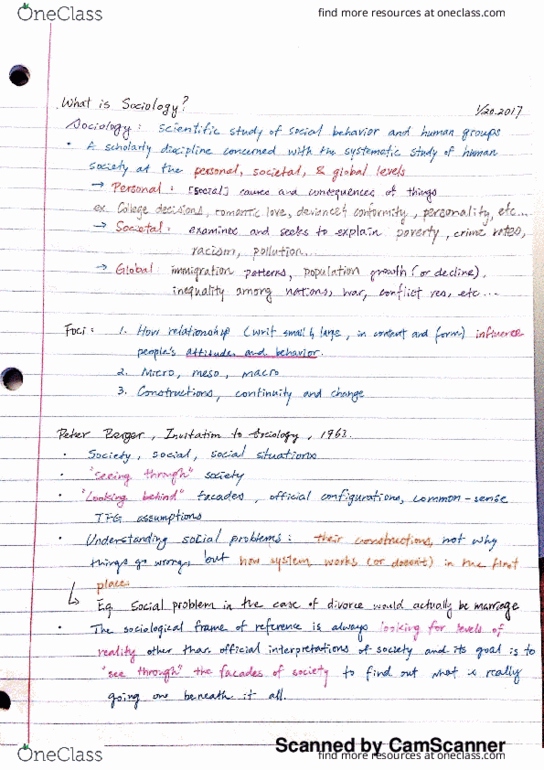 OneClass
find more resources at oneclass.com
What is Sociology?
1/20.2017
Sociology: scientific study of social behavior and human groups
• A scholarly discipline concerned with the systematic study of human
society at the personal, societal, & global levels
→ Personal: [social] causes and consequences of things
ex. College decisions, romantic love, deviance & conformity, personality, etc...
→ Societal: examines and seeks to explain poverty, crime rates,
racism, pollution...
→ Global: immigration patterns, population growth (or decline),
inequality among nations, war, conflict res, etc...
Foci: 1. How relationship (writ small & large, in content and form) influence
people's attitudes and behavior.
2. Micro, meso, macro
3. Constructions, continuity and change
Peter Berger, Invitation to Sociology, 1963.
• Society, social, social situations
• "seeing through" society
• "Looking behind" facades, official configurations, common-sense
TFG assumptions
• Understanding social problems: their constructions, not why
things go wrong, but how system works (or doesn't) in the first
place
↳ Eg. Social problem in the case of divorce would actually be marriage
• The sociological frame of reference is always looking for levels of
reality other than official interpretations of society and its goal is to
"see through" the facades of society to find out what is really
going one beneath it all.
Scanned by CamScanner
OneClass
find more resources at oneclass.com